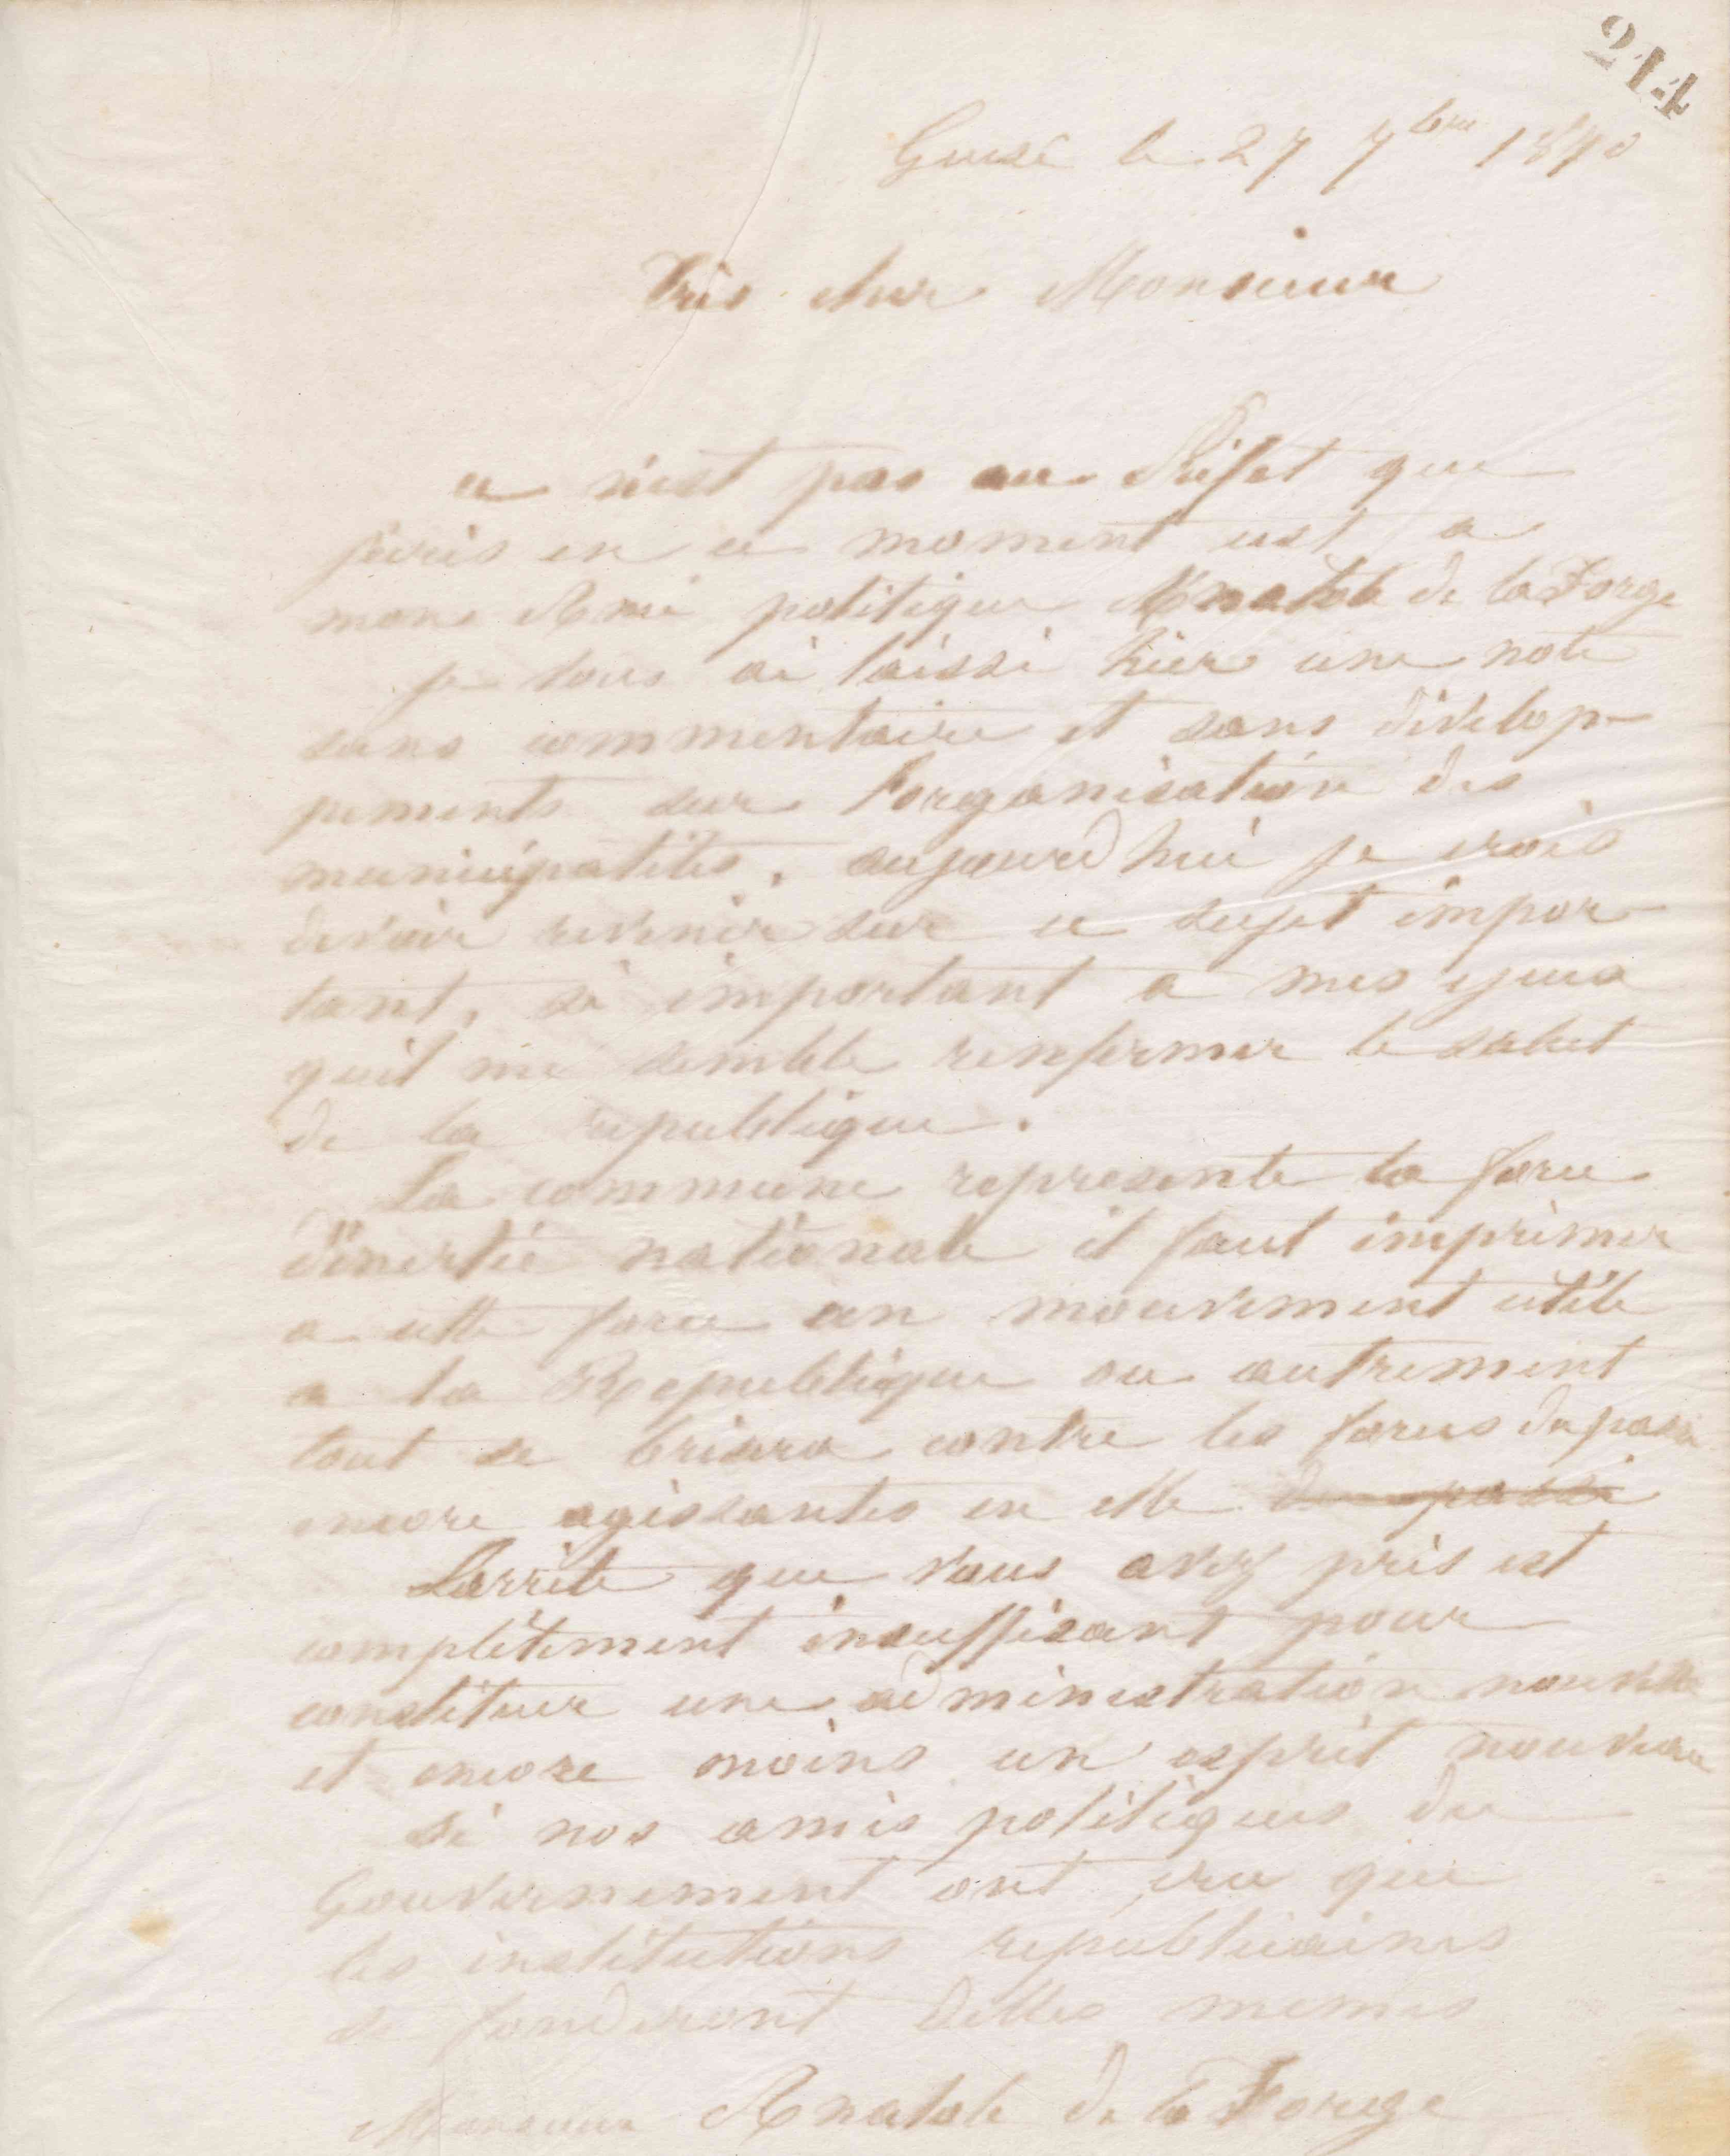 214
Guise le 27 7bre 1870
Très cher Monsieur
ce n'est pas au Préfet que
j'ecris en ce moment cest a
mon Ami politique Anatole de la Forge
je vous ai laissé hier une note
sans commentaire et sans dévelop-
pements sur l'organisation des
municipalités. aujourd hui je crois
devoir revenir sur ce sujet impor
tant, si important a mes yeux
quil me semble renfermer le salut
de la republique.
La commune represente la force
d'inertie nationale il faut imprimer
a cette force un mouvement utile
a la Republique ou autrement
tout se brisera contre les forces du passé
encore agissantes en elle du passé
Larrêté que vous avez pris est
complètement insuffisant pour
constituer une administration nouvelle
et encore moins un esprit nouveau
Si nos amis politiques du
Gouvernement ont cru que
les institutions républicaines
se fonderont delles memes
Monsieur Anatole de la Forge